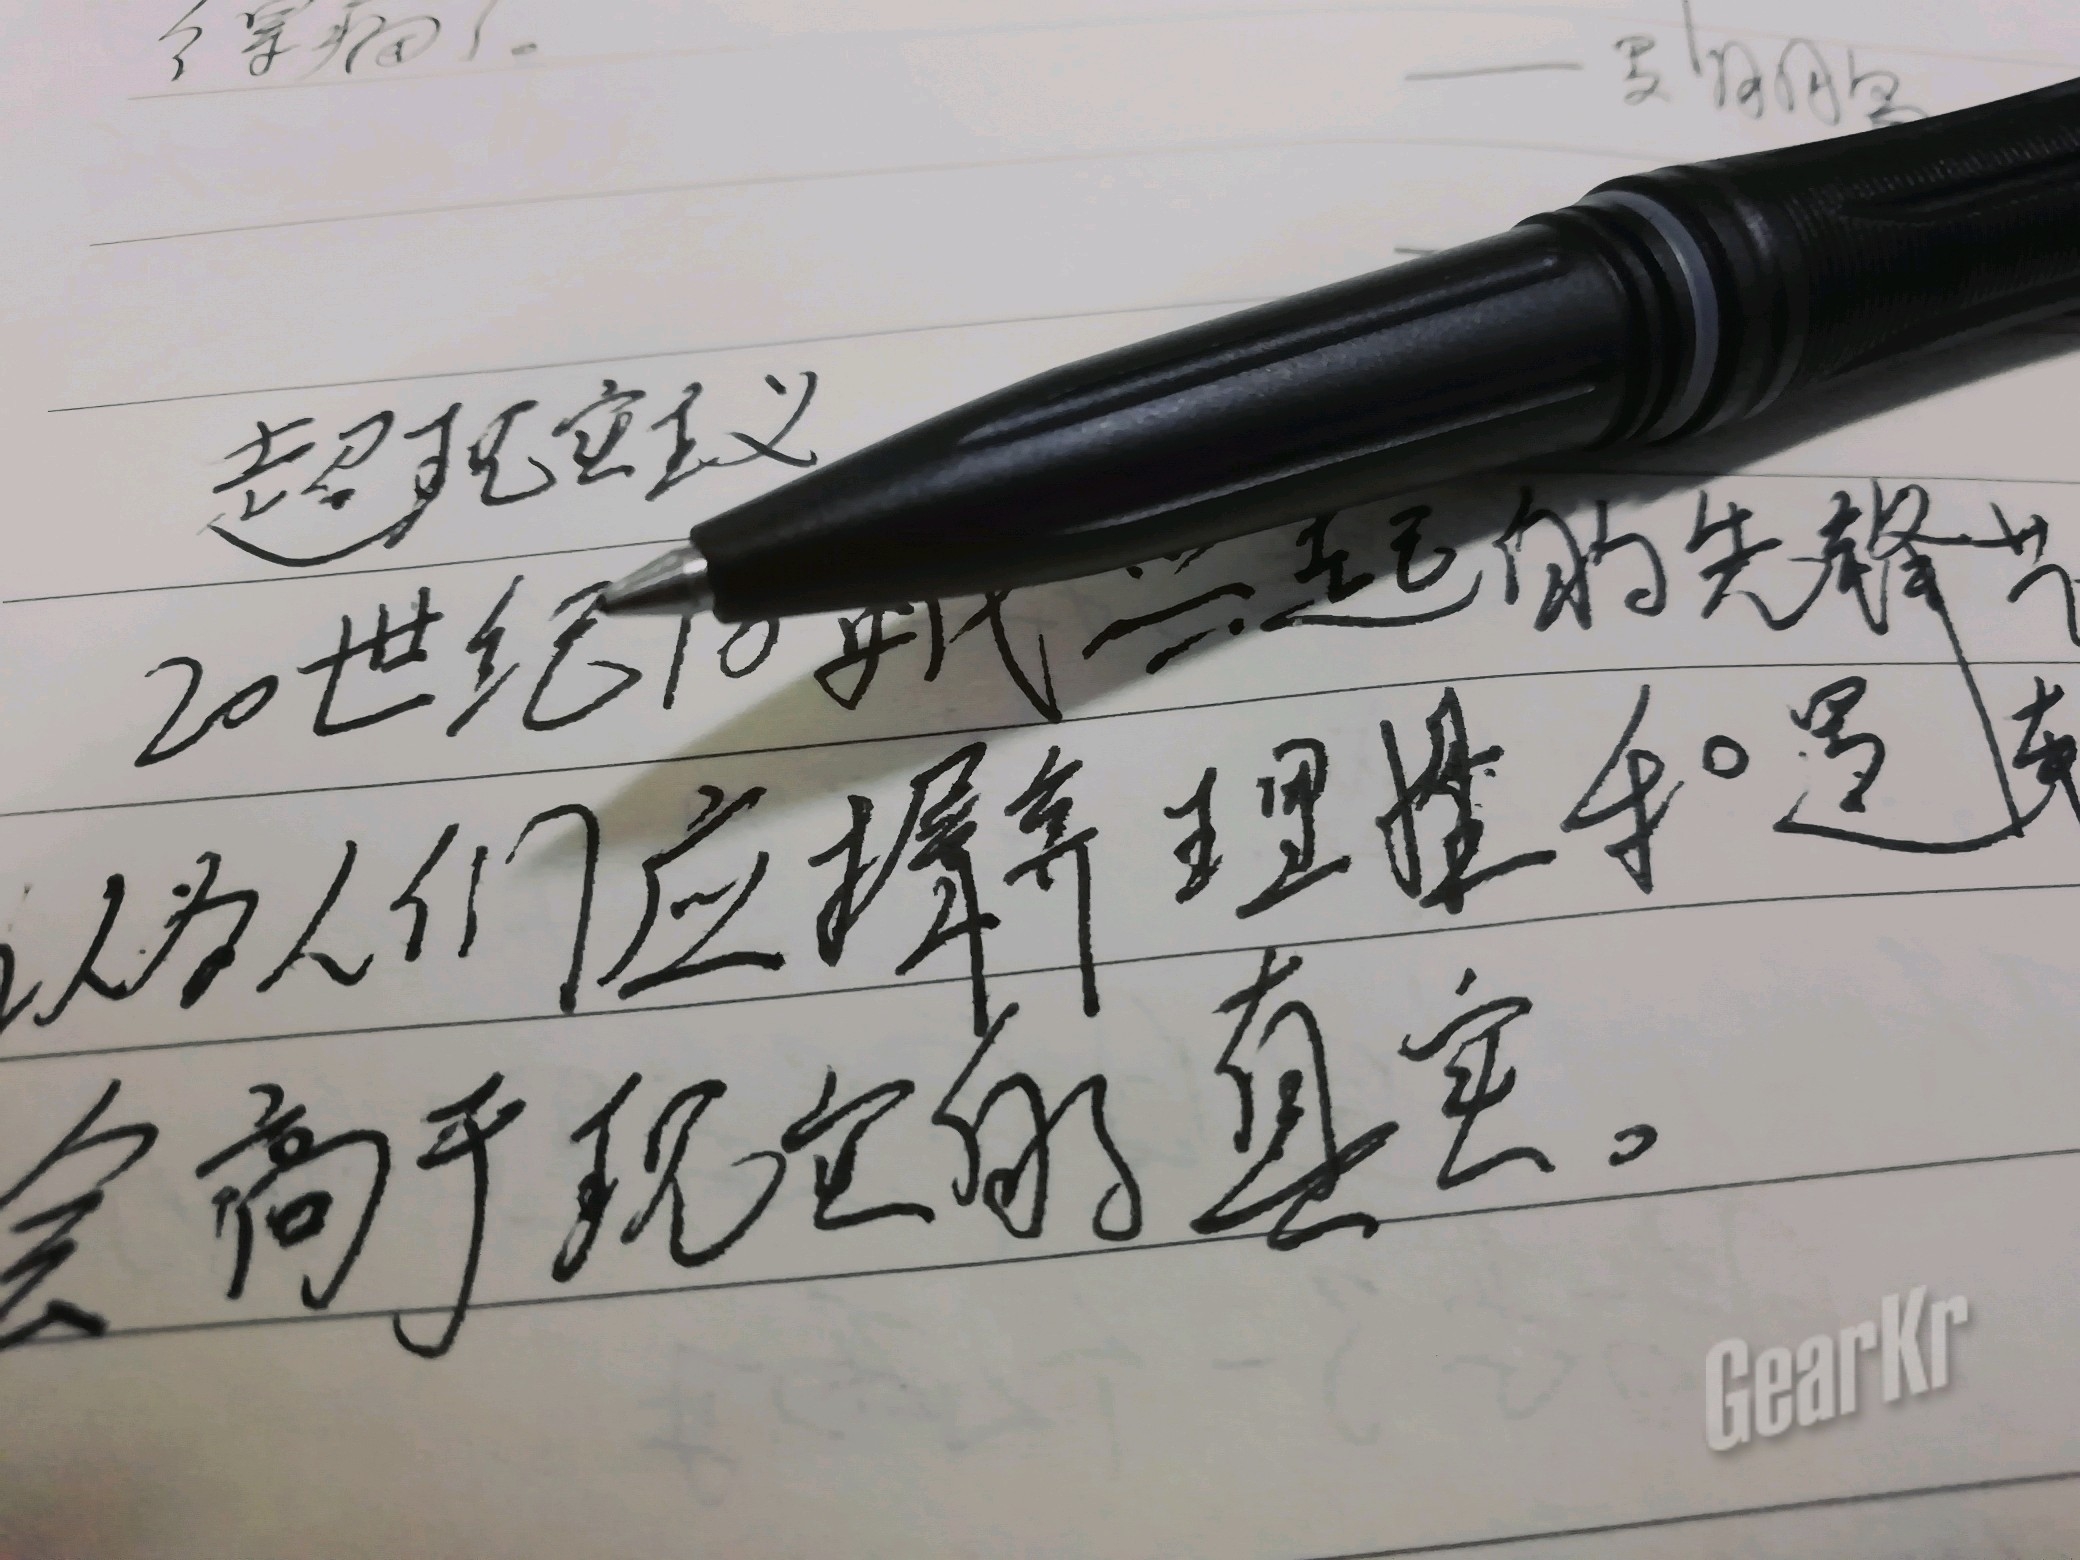 得病了。
超现实主义
20世纪10年代兴起的先锋艺
认为人们应摒弃理性和
会高于现实的真实。
GearKr